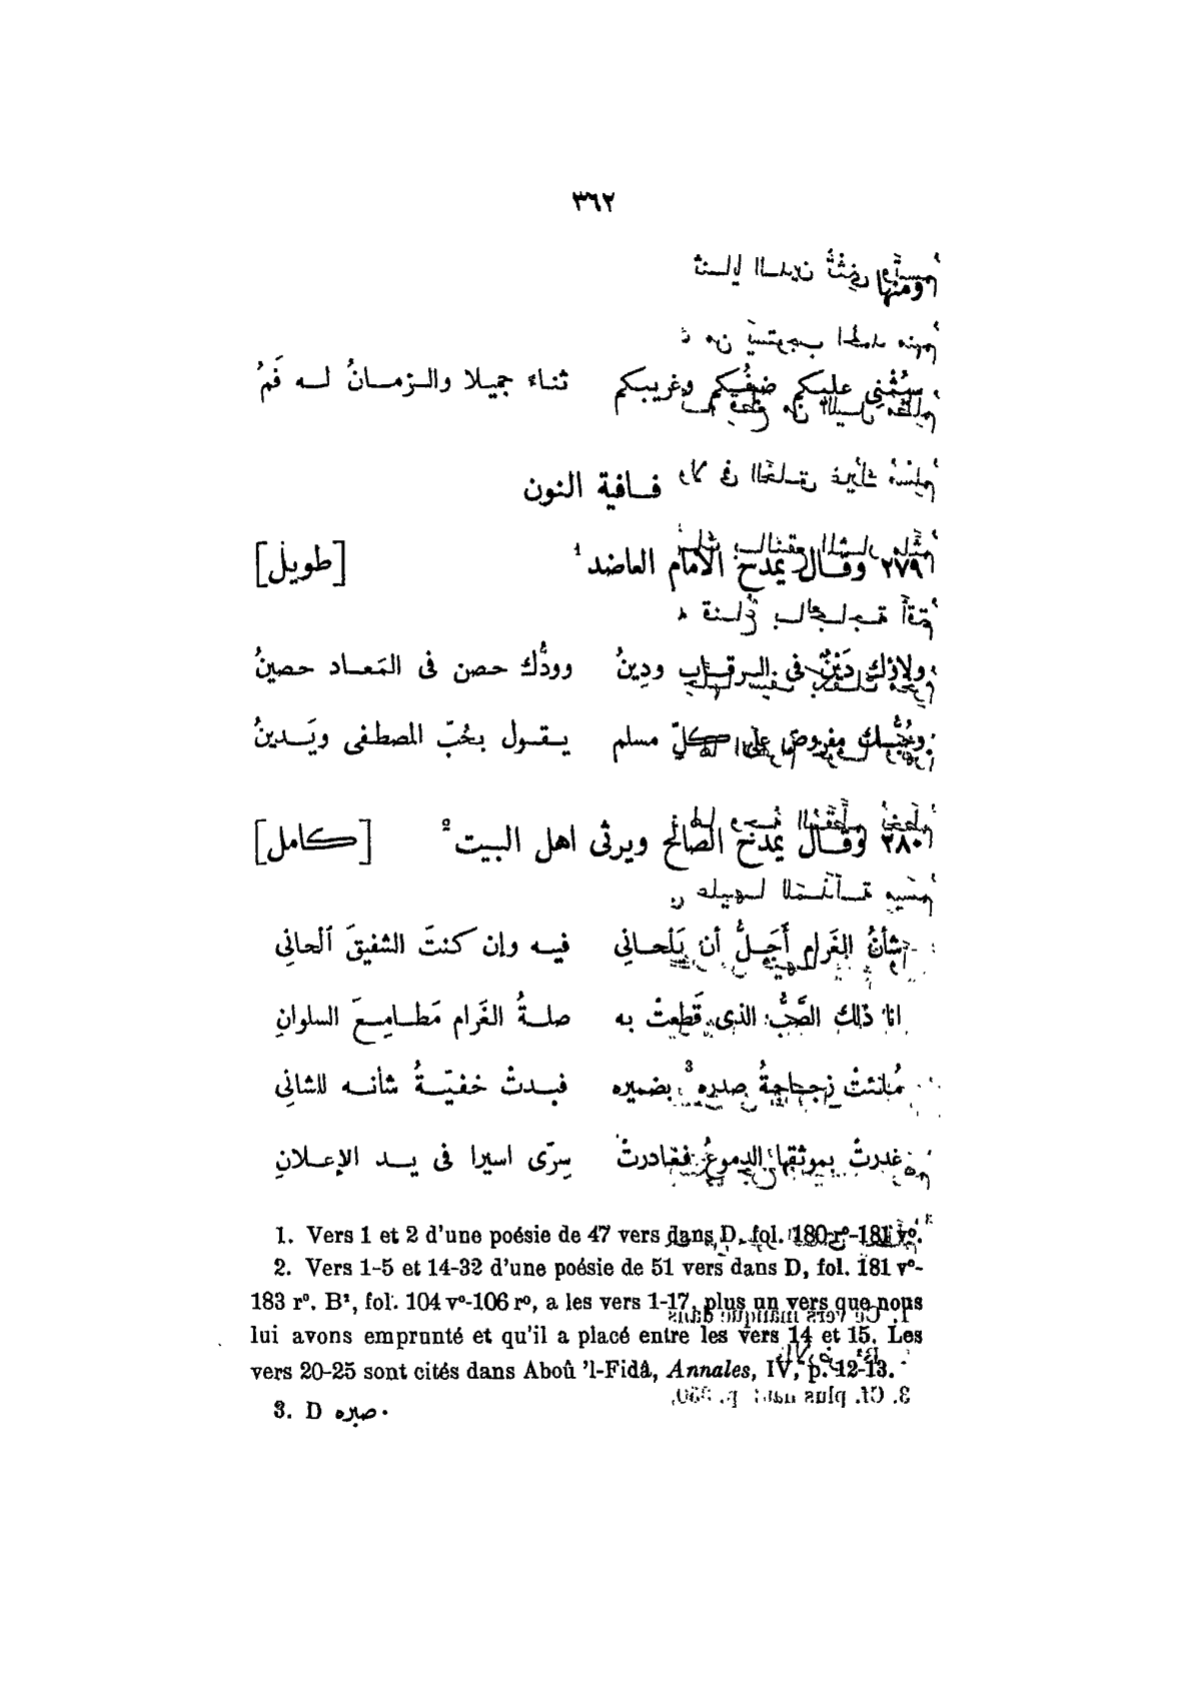 ٣٦٢
ومنها
سيُثْنِى عليكم ضيفُكم وغريبكم ثناءً جميلا والـزمـانُ لـه فَمُ
قـافية النون
٢٧٩ وقـال يمدح الامام العاضد¹ [طويل]
ولاؤك دَيْنٌ فى الـرقـاب ودِينُ وودُّك حصن فى المَعـاد حصينُ
وحُبُّـك مفروض على كلّ مسلم يـقـول بحُبّ المصطفى ويَـدينُ
٢٨٠ وقـال يمدح الصالح ويرثى اهل البيت² [كامل]
شأنُ الغَرام أَجَلُّ أن يَلْحـانِى فيـه وإن كنتَ الشفيقَ ٱلحانِى
انا ذلك الصَّبُّ الذى قَطعتْ به صلـةُ الغَرام مَطـامِـعَ السلوانِ
مُلئتْ زجـاجةُ صدره³ بضميره فبـدتْ خفيّـةُ شأنـه للشانِى
غدرتْ بموثقها الدموعُ فغادرتْ سِرّى اسيرا فى يـد الإعـلانِ
1. Vers 1 et 2 d'une poésie de 47 vers dans D, fol. 180 rº-181 vº.
2. Vers 1-5 et 14-32 d'une poésie de 51 vers dans D, fol. 181 vº-
183 rº. B², fol. 104 vº-106 rº, a les vers 1-17, plus un vers que nous
lui avons emprunté et qu'il a placé entre les vers 14 et 15. Les
vers 20-25 sont cités dans Aboû 'l-Fidâ, Annales, IV, p. 12-13.
3. D صبره.